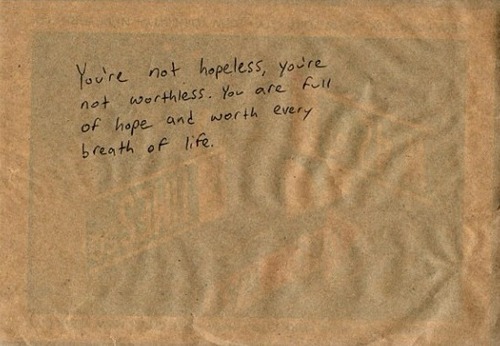 You're not hopeless, you're
not worthless. You are full
of hope and worth every
breath of life.